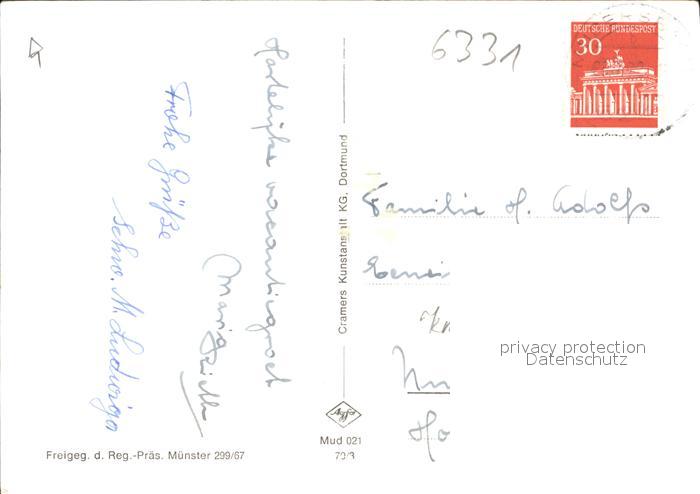 Hartelijke vacantiegroet
Maria
Frohe Grüße
Schw. M. Ludwiga
Freigeg. d. Reg.-Präs. Münster 299/67
Cramers Kunstanstalt KG. Dortmund
Agfa
Mud 021
70/3
6331
DEUTSCHE BUNDESPOST
30
Familie H. Adolfs
privacy protection
Datenschutz